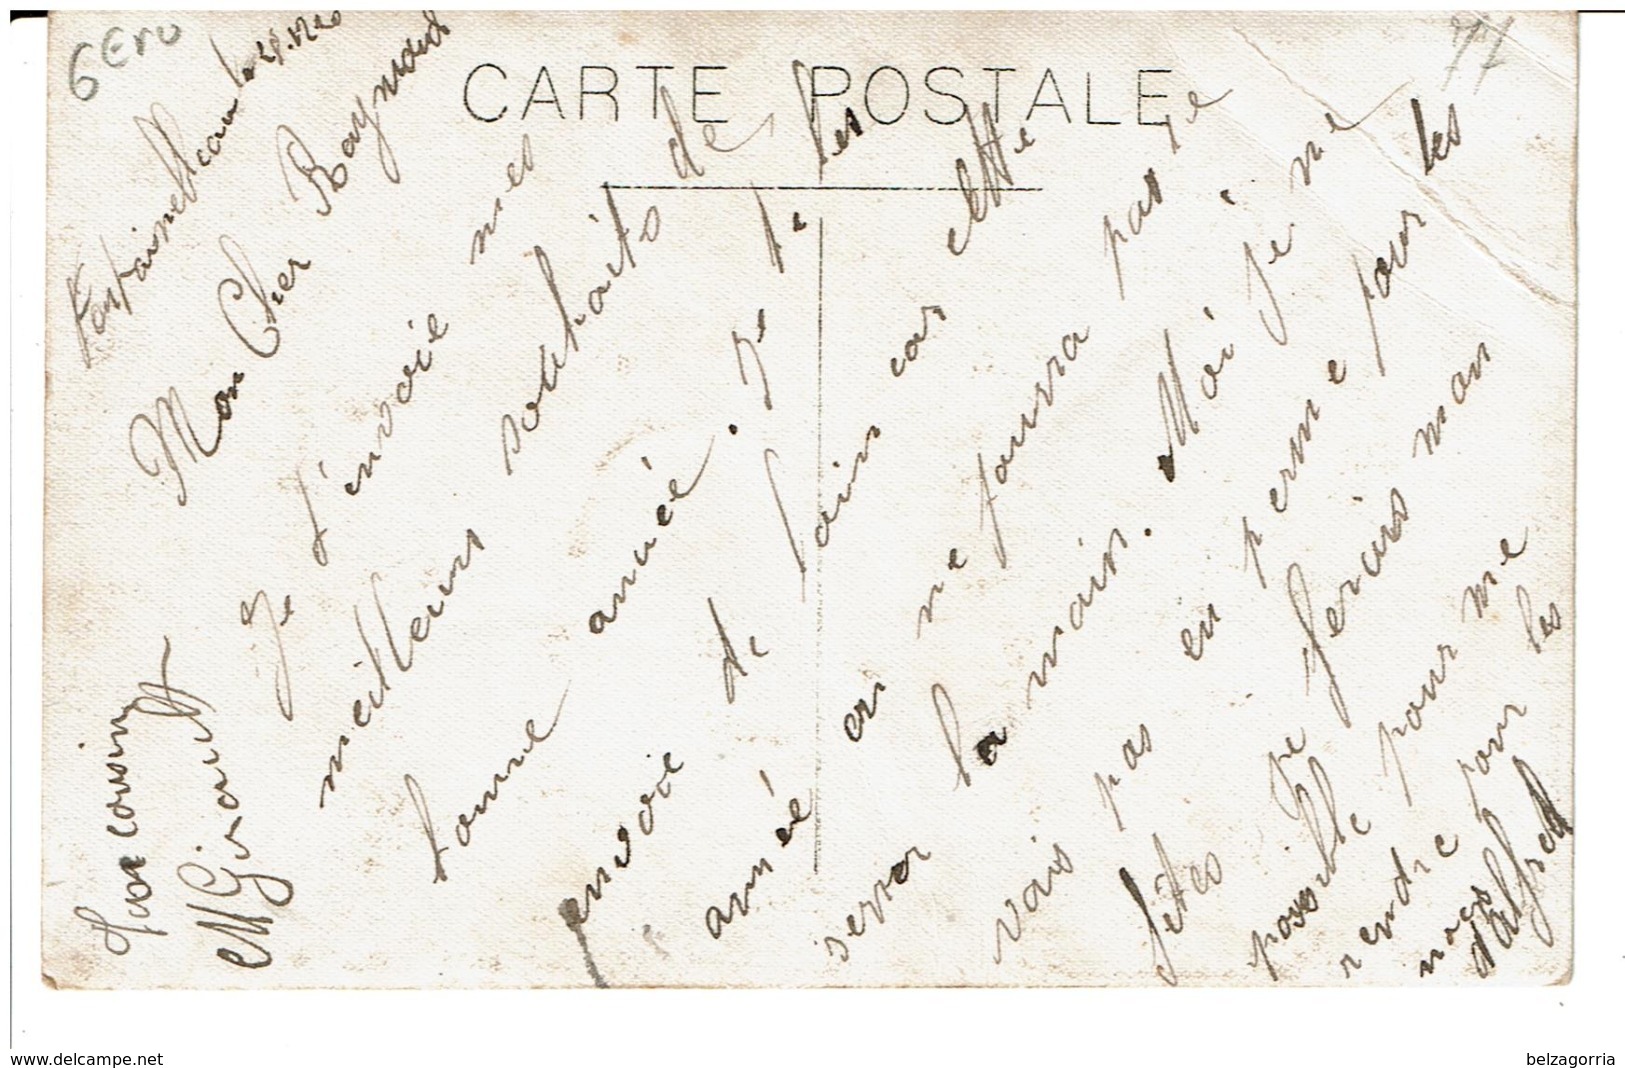 6 Euro
77
CARTE POSTALE
Fontainebleau le 29.12.20
Mon Cher Raymond
Je t'envoie mes
meilleurs souhaits de
bonne année. Je te les
envoie de loin car cette
année en ne pourra pas se
serrer la main. Moi je ne
vais pas en perme pour les
fêtes je ferais mon
possible pour me
rendre pour les
noces
d'Alfred
Ton cousin
M Girault
www.delcampe.net
belzagorria